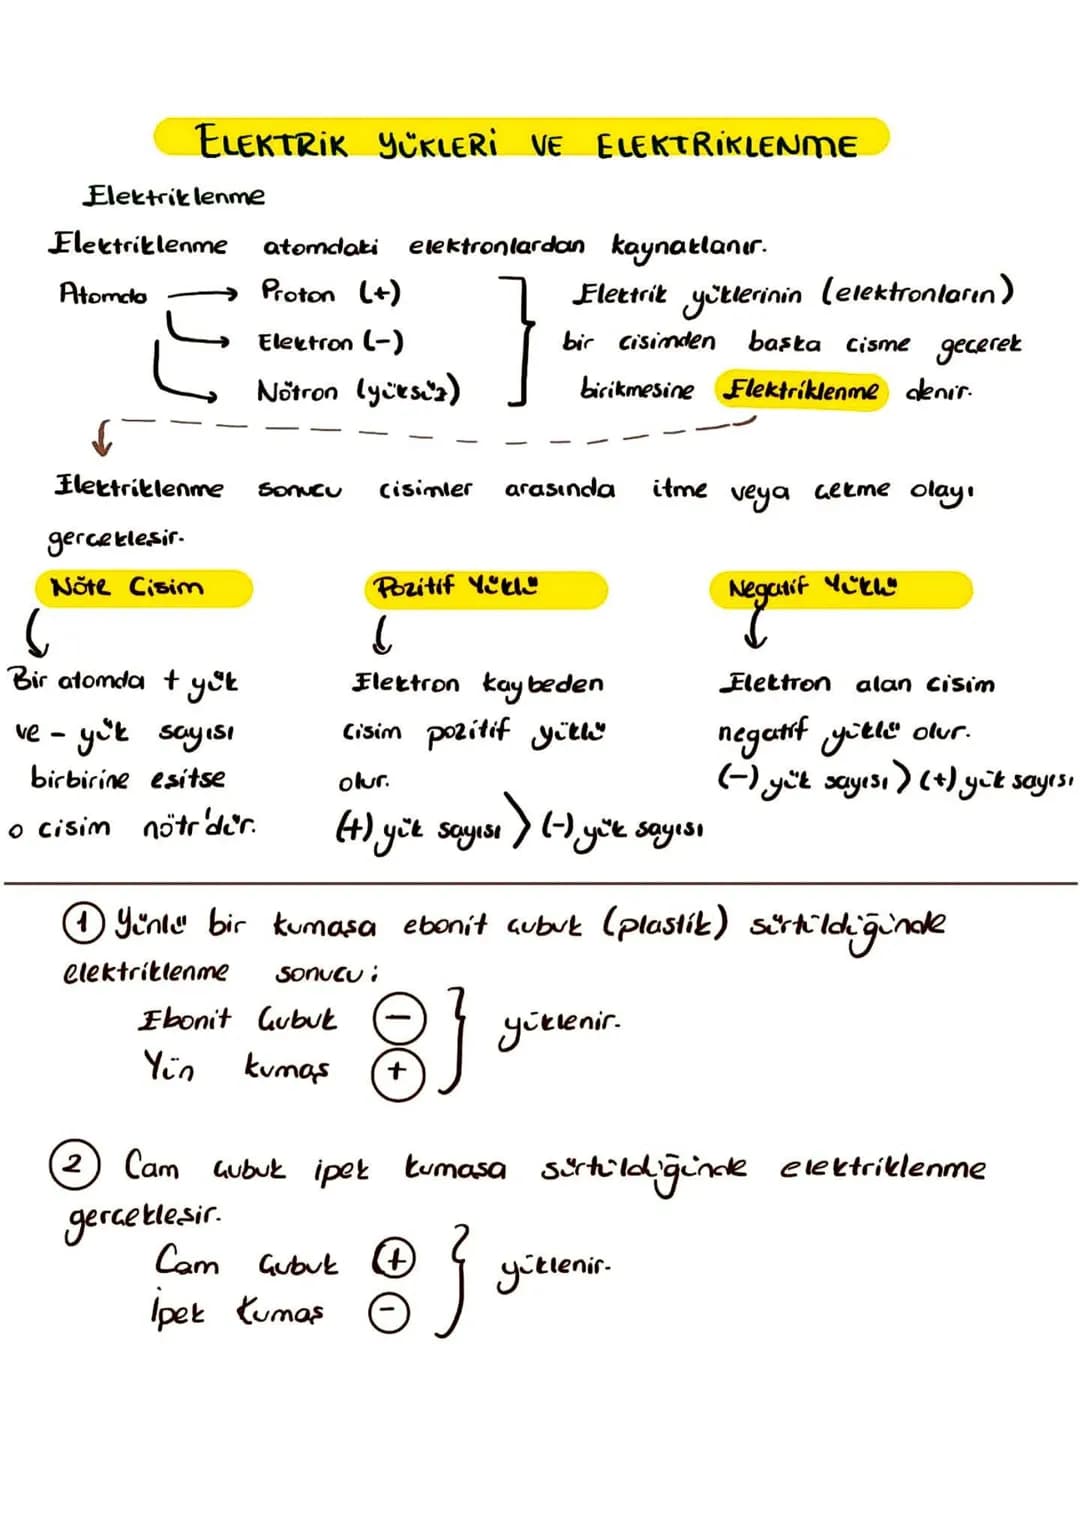 ELEKTRİK YÜKLERİ VE ELEKTRİKLENME
Elektriklenme
Elektriklenme atomdaki elektronlardan kaynaklanır.
Atomda → Proton (+)
Elektron (-)
Nötron (yüksüz)
Elektrik yüklerinin (elektronların)
bir cisimden başka cisme geçerek
birikmesine Elektriklenme denir.
Elektriklenme sonucu cisimler arasında itme veya çekme olayı
gerçekleşir.
Nötr Cisim
Bir atomda + yük
ve - yük sayısı
birbirine eşitse
o cisim nötr'dür.
Pozitif Yüklü
Elektron kaybeden
cisim pozitif yüklü
olur.
(+) yük sayısı > (-) yük sayısı
Negatif Yüklü
Elektron alan cisim
negatif yüklü olur.
(-) yük sayısı > (+) yük sayısı
1 Yünlü bir kumaşa ebonit çubuk (plastik) sürtüldüğünde
elektriklenme sonucu;
Ebonit Çubuk -
Yün kumaş +
} yüklenir.
2 Cam çubuk ipek kumaşa sürtüldüğünde elektriklenme
gerçekleşir.
Cam Çubuk +
İpek Kumaş -
} yüklenir.